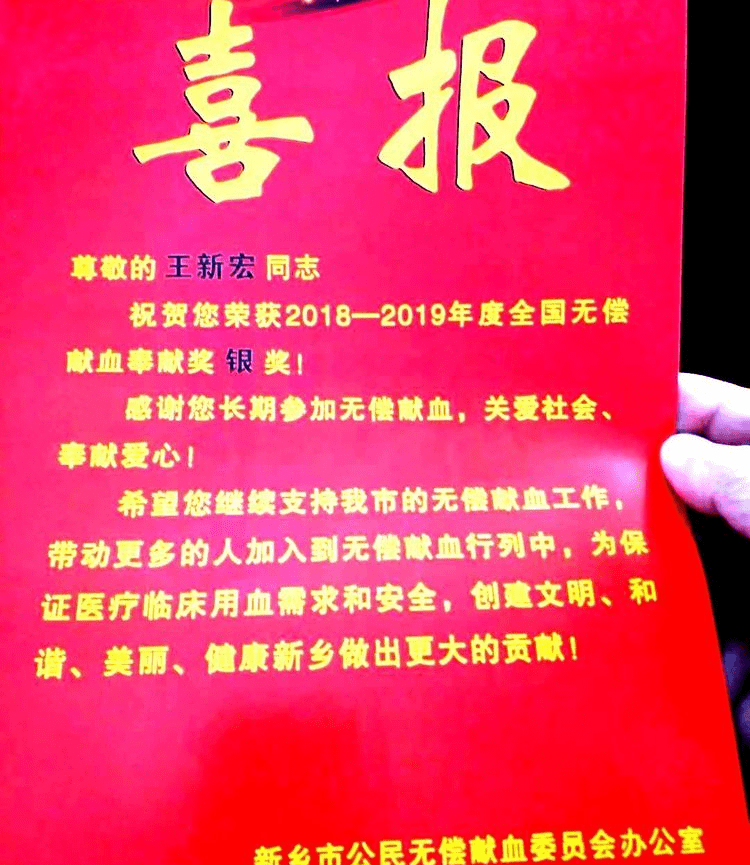 喜报
尊敬的 王新宏 同志
祝贺您荣获2018—2019年度全国无偿
献血奉献奖 银 奖！
感谢您长期参加无偿献血，关爱社会、
奉献爱心！
希望您继续支持我市的无偿献血工作，
带动更多的人加入到无偿献血行列中，为保
证医疗临床用血需求和安全，创建文明、和
谐、美丽、健康新乡做出更大的贡献！
新乡市公民无偿献血委员会办公室